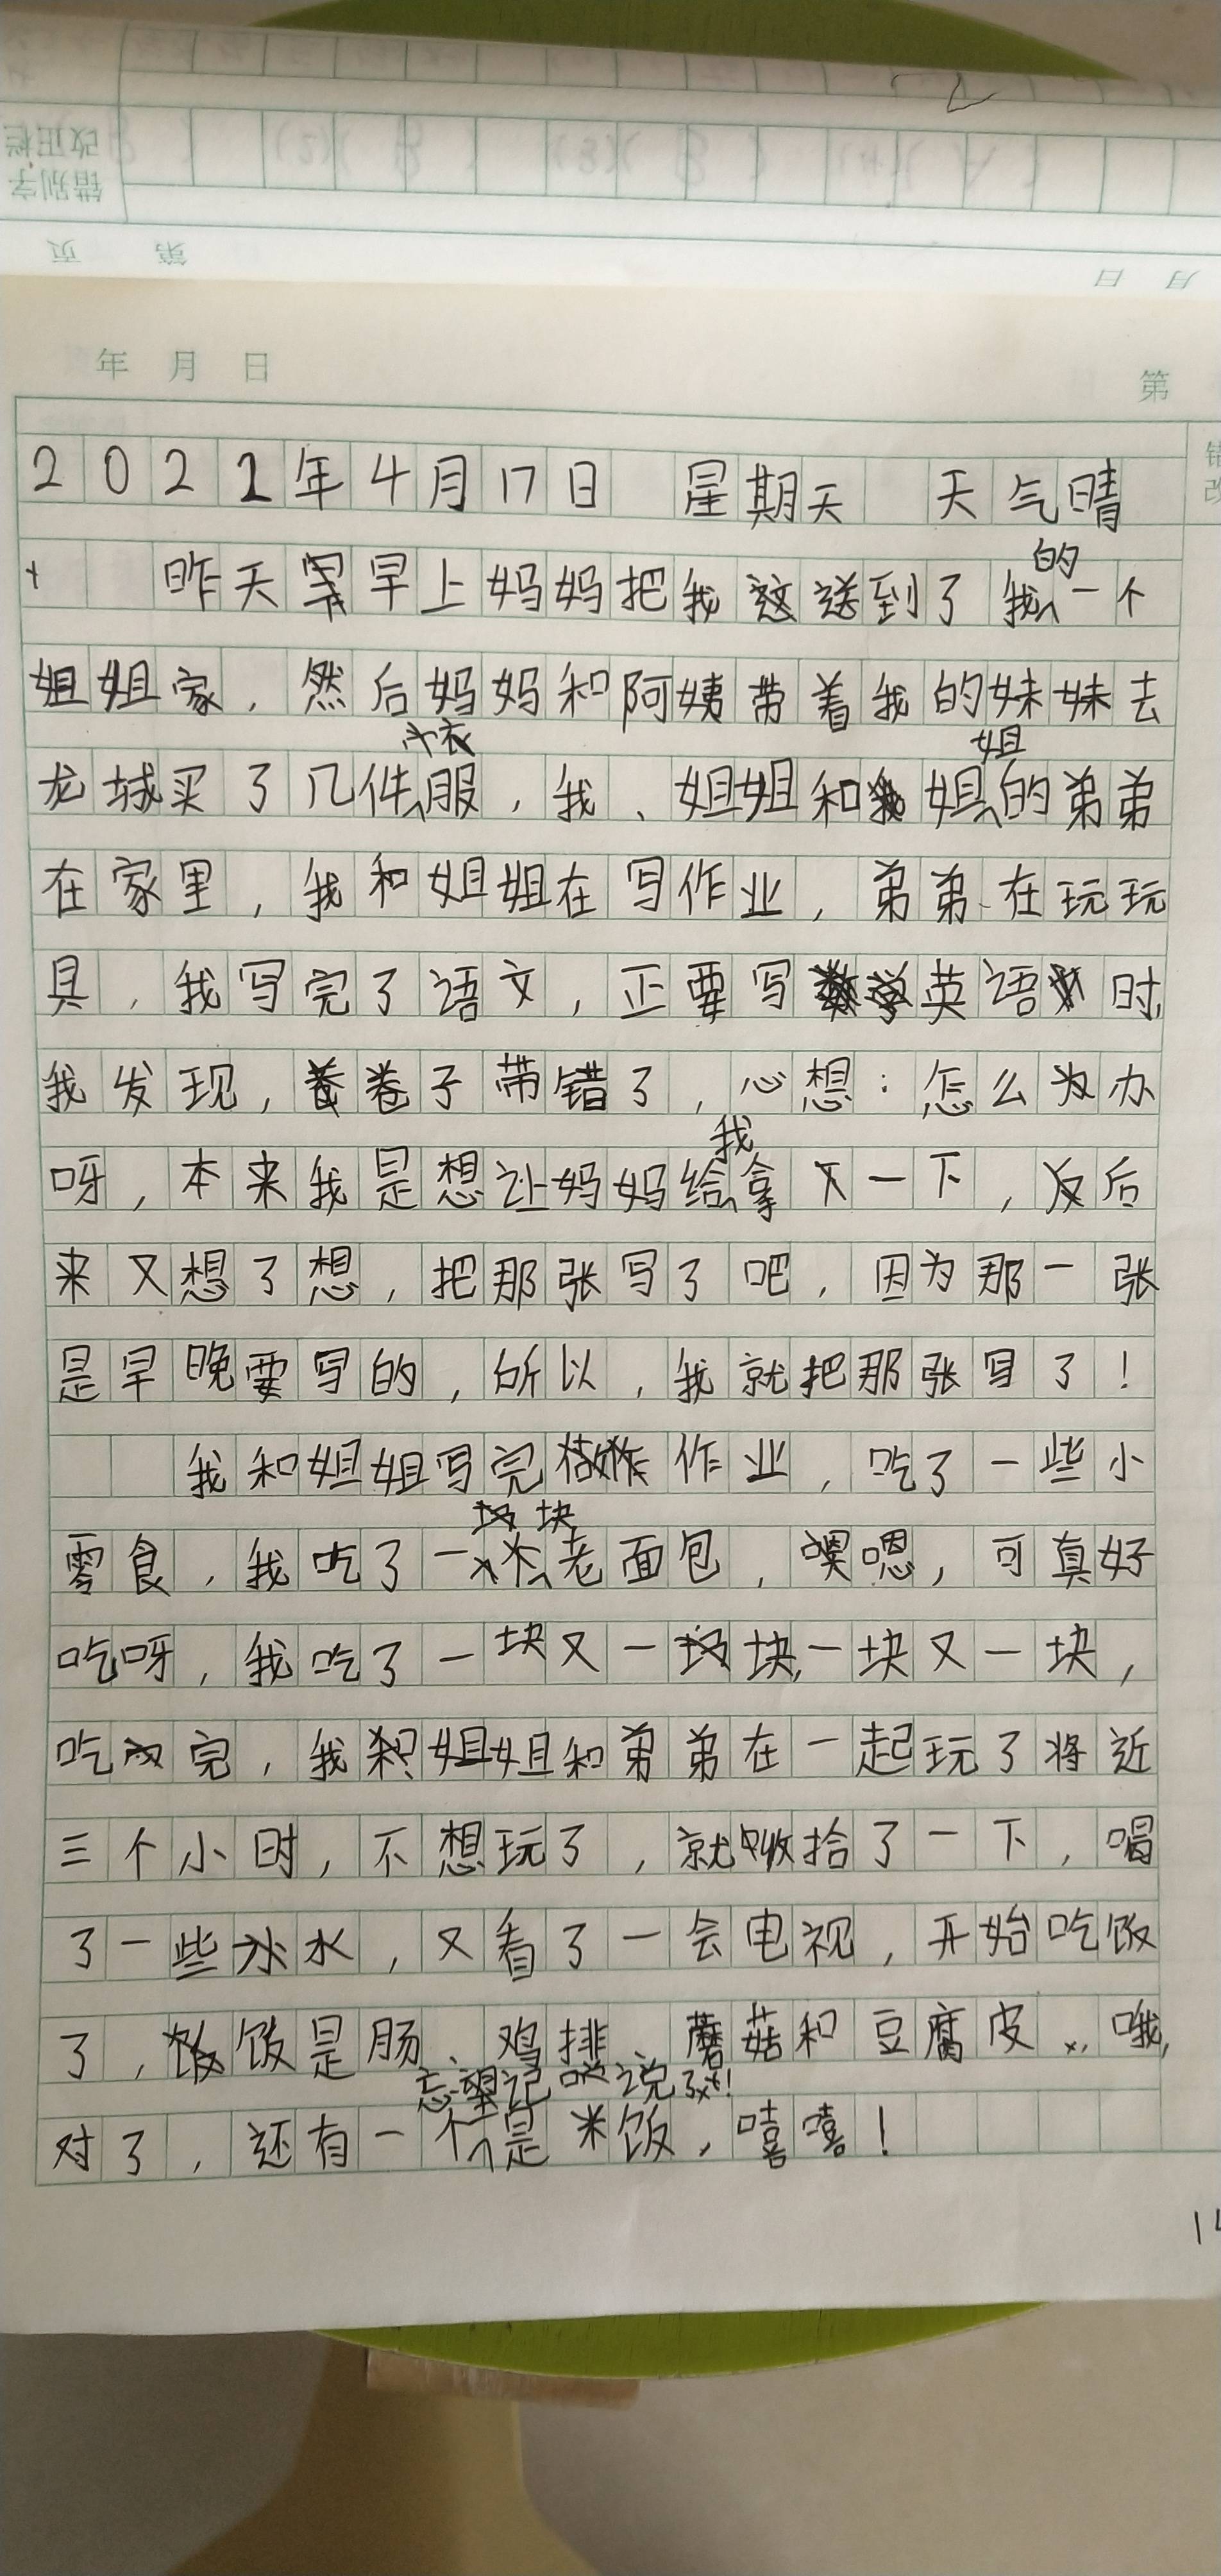 改正栏
错别字
页 第 日 月
年 月 日 第
2022年4月17日 星期天 天气晴
昨天早上妈妈把我送到了我的一个
姐姐家，然后妈妈和阿姨带着我的妹妹去
龙城买了几件衣服，我、姐姐和姐姐的弟弟
在家里，我和姐姐在写作业，弟弟在玩玩
具，我写完了语文，正要写英语时，
我发现，卷子带错了，心想：怎么办
呀，本来我是想让妈妈给我拿一下，后
来又想了想，把那张写了吧，因为那一张
是早晚要写的，所以，我就把那张写了！
我和姐姐写完作业，吃了一些小
零食，我吃了一块老面包，嗯，可真好
吃呀，我吃了一块又一块，一块又一块，
吃完，我和姐姐和弟弟在一起玩了将近
三个小时，不想玩了，就收拾了一下，喝
了一些水，又看了一会电视，开始吃饭
了，饭是肠、鸡排、蘑菇和豆腐皮，哦，
对了，还有一个忘记说了！是米饭，嘻嘻！